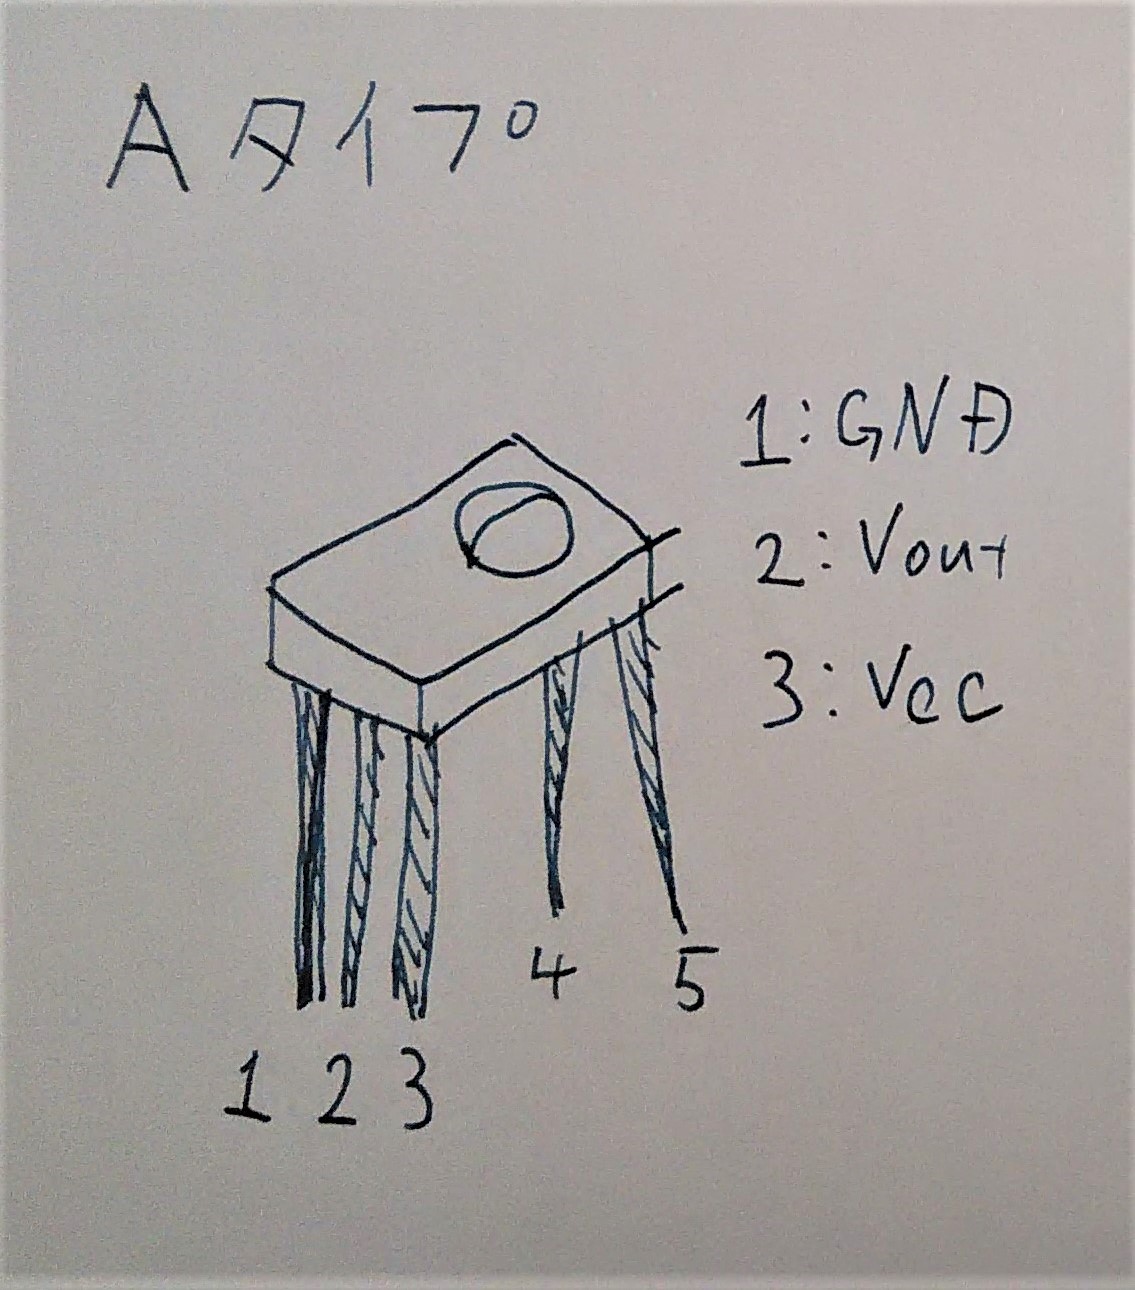 Aタイプ
1:GND
2:Vout
3:Vcc
4 5
1 2 3